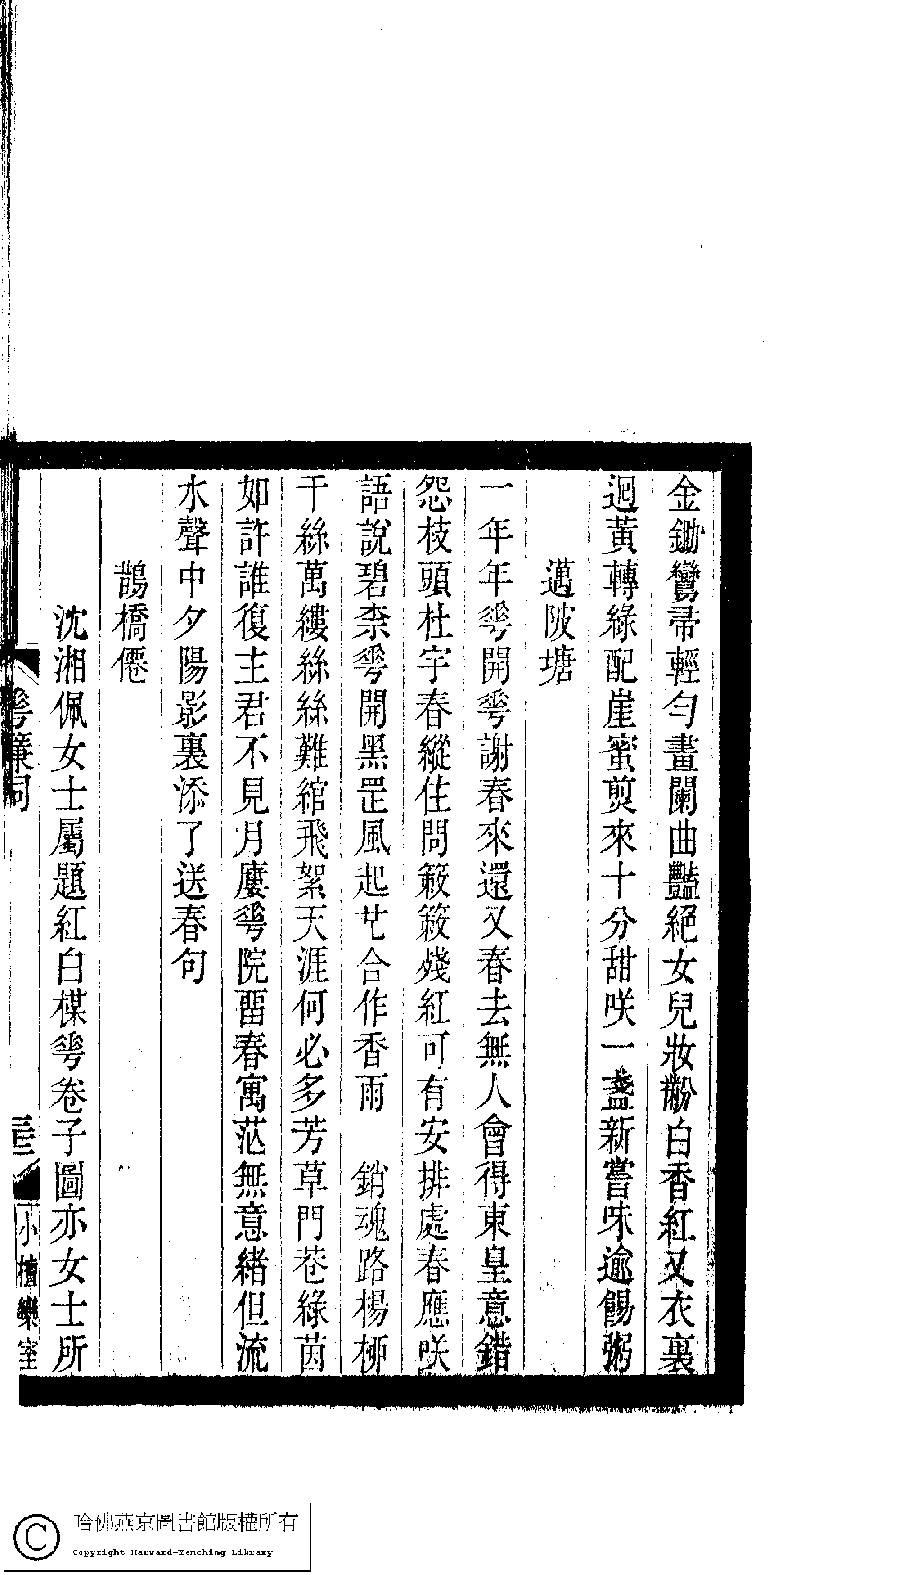 金鋤鸞帚輕勻畫闌曲豔絕女兒妝黺白香紅又衣裏
迴黃轉綠配崖蜜剪來十分甜咲一盞新嘗味逾餳粥
邁陂塘
一年年蕚開蕚謝春來還又春去無人會得東皇意錯
怨枝頭杜宇春縱住問簌簌殘紅可有安排處春應咲
語說碧柰蕚開黑罡風起七合作香雨　銷魂路楊桺
千絲萬縷絲絲難綰飛絮天涯何必多芳草門巷綠茵
如許誰復主君不見月廔蕚院畱春寓范無意緒但流
水聲中夕陽影裏添了送春句
鵲橋僊
沈湘佩女士屬題紅白楳蕚卷子圖亦女士所
蕚簾詞
三
小檀欒室
哈佛燕京圖書館版權所有
Copyright Harvard-Yenching Library